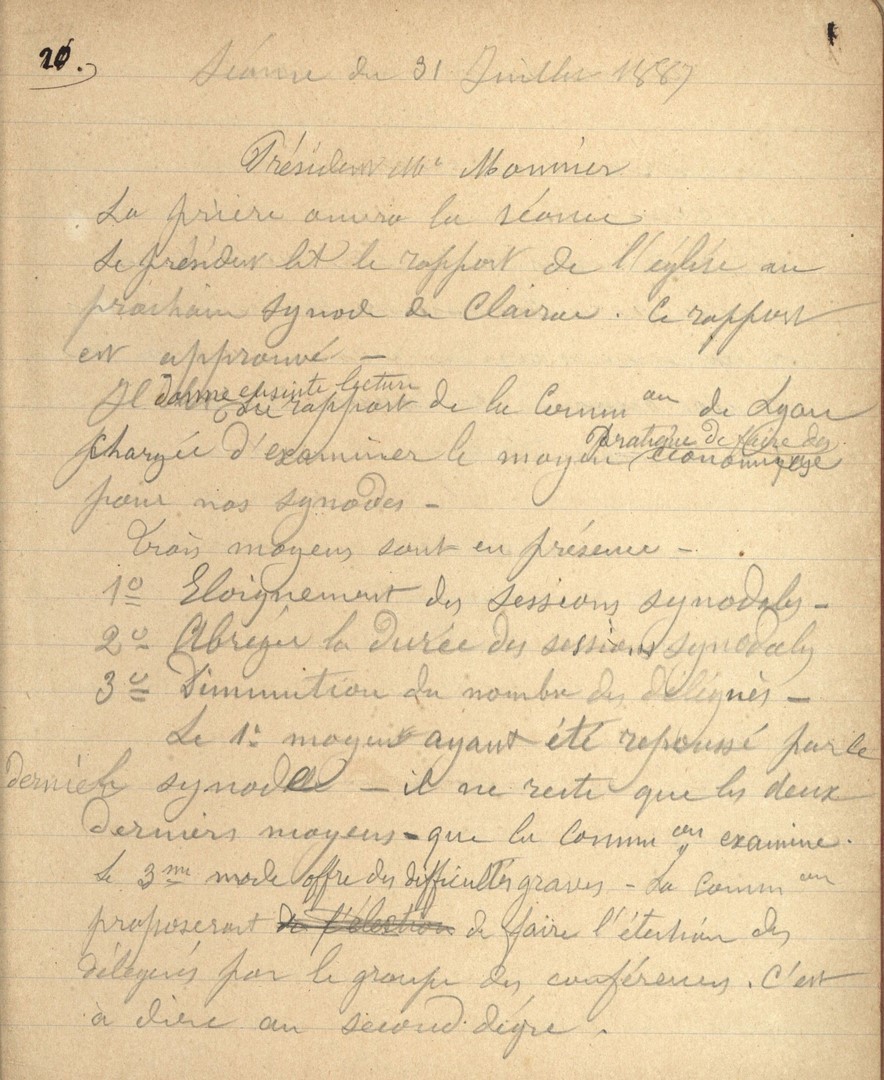 20.
Séance du 31 Juillet 1887
Président Mr Monnier
La prière ouvre la séance
Le président lit le rapport de l'église au
prochain synode de Clairac. Ce rapport
est approuvé –
Il donne ensuite lecture du rapport de la Comm on de Lyon
chargée d'examiner le moyen pratique de faire des économies
pour nos synodes –
Trois moyens sont en présence –
1º Eloignement des sessions synodales –
2º Abréger la durée des sessions synodales
3º Diminution du nombre des délégués –
Le 1r moyen ayant été repoussé par le
dernier synode – il ne reste que les deux
derniers moyens – que la Comm on examine.
Le 3me mode offre des difficultés graves – La Comm on
proposerait de l'élection de faire l'élection des
délégués par le groupe des conférences. C'est
à dire au second dégré.